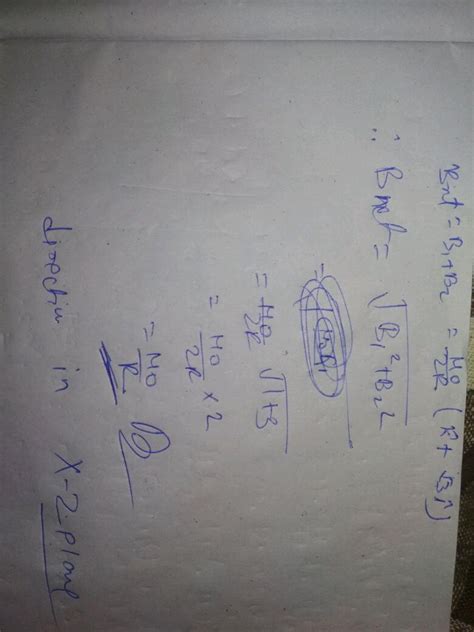 Bnet = B₁+B₂ = μ₀/2R (k̂ + √3 î)
∴ Bnet = √B₁²+B₂²
= μ₀/2R √1+3
= μ₀/2R × 2
= μ₀/R
direction in X-Z-Plane